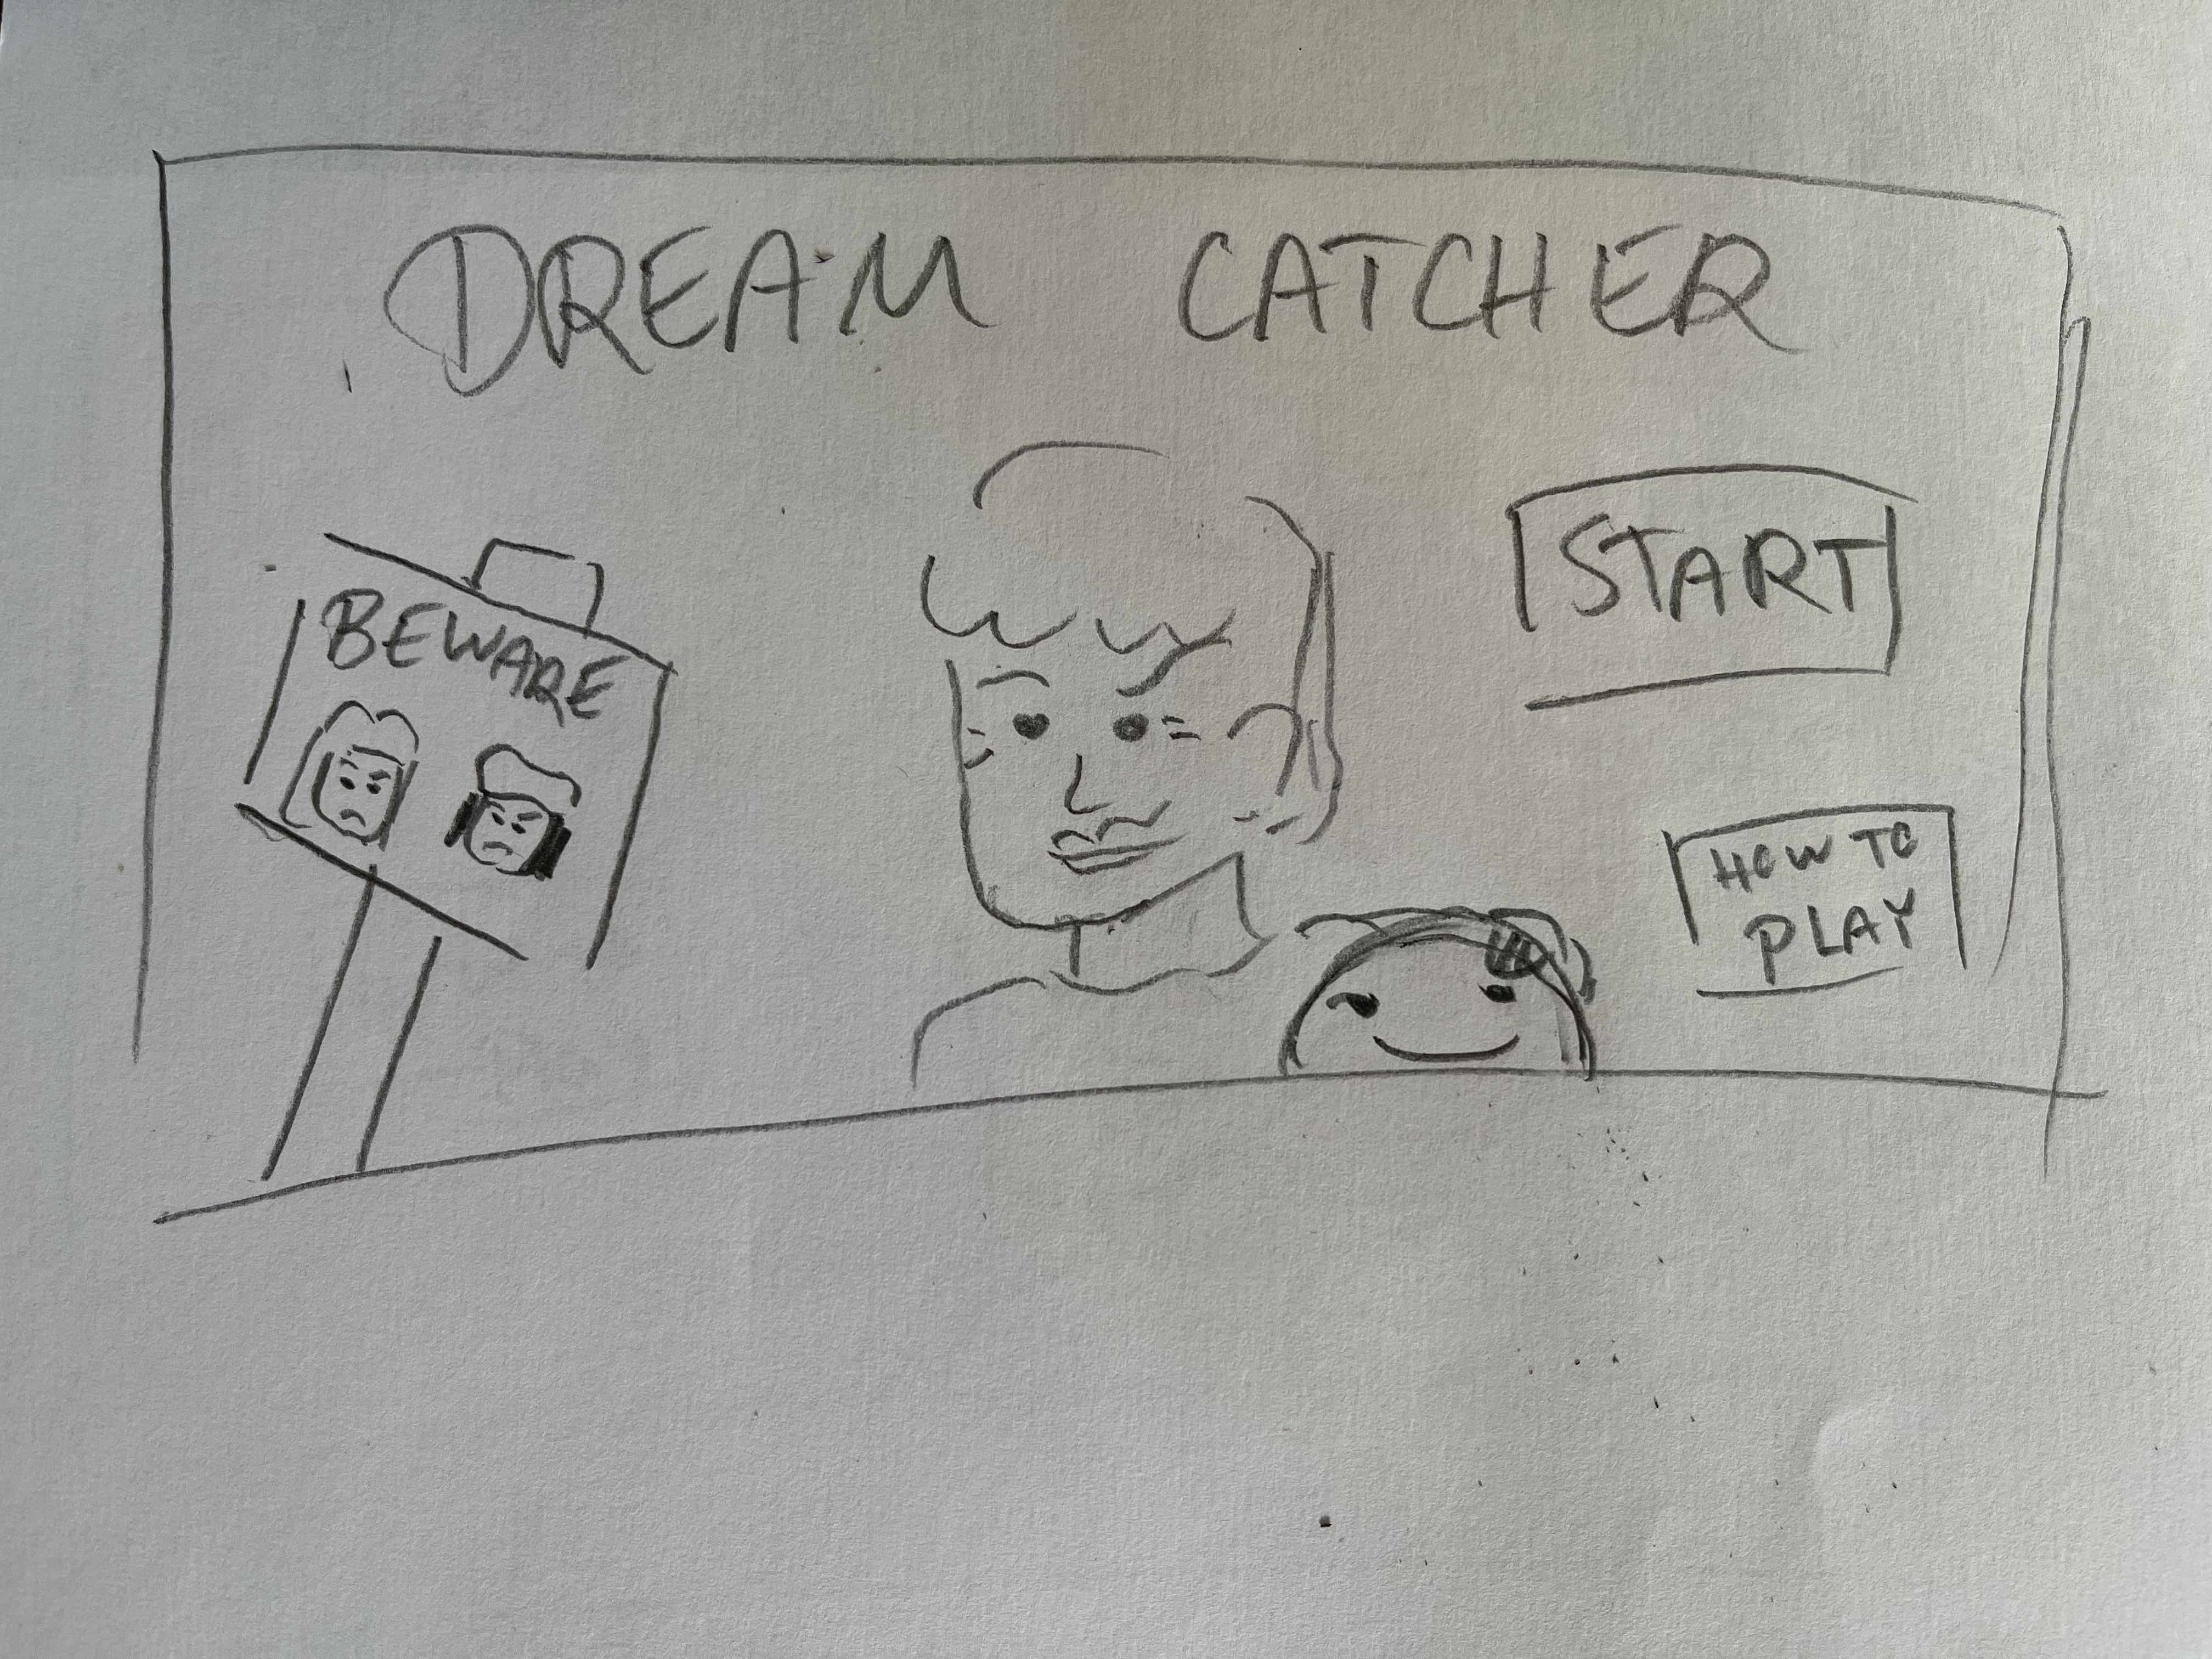 DREAM CATCHER
BEWARE
START
HOW TO
PLAY